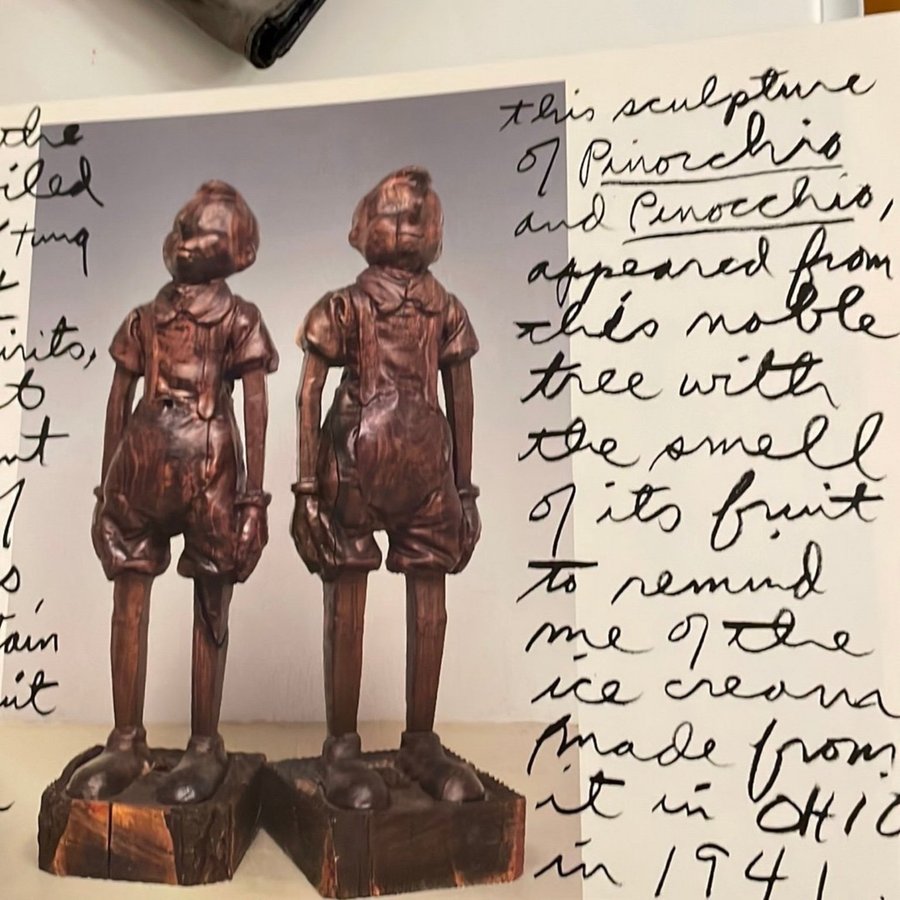 the
iled
tung
irits,
to
nt
of
s
tain
uit
this sculpture
of Pinocchio
and Pinocchio,
appeared from
this noble
tree with
the smell
of its fruit
to remind
me of the
ice cream
made from
it in OHIO
in 1941.